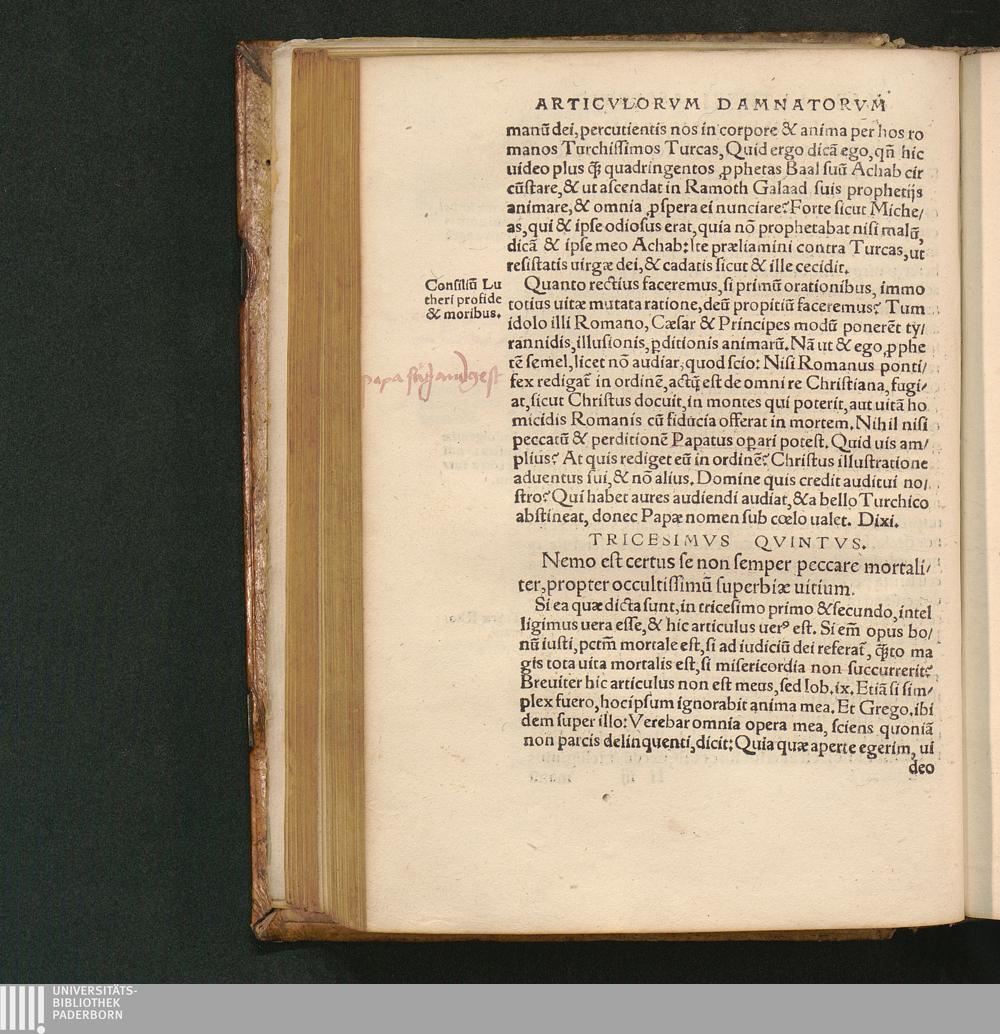 ARTICVLORVM DAMNATORVM
manū dei, percutientis nos in corpore & anima per hos ro
manos Turchissimos Turcas, Quid ergo dicā ego, qñ hic
uideo plus q̄ꝫ quadringentos ꝓphetas Baal suū Achab cir
cūstare, & ut ascendat in Ramoth Galaad suis prophetijs
animare, & omnia ꝓspera ei nunciare? Forte sicut Miche/
as, qui & ipse odiosus erat, quia nō prophetabat nisi malū,
dicā & ipse meo Achab: Ite præliamini contra Turcas, ut
resistatis uirgæ dei, & cadatis sicut & ille cecidit.
Consiliū Lu
theri pro fide
& moribus.
Quanto rectius faceremus, si primū orationibus, immo
totius uitæ mutata ratione, deū propitiū faceremus? Tum
idolo illi Romano, Cæsar & Principes modū ponerēt ty/
rannidis, illusionis, ꝑditionis animarū. Nā ut & ego, ꝓphe
tē semel, licet nō audiar, quod scio: Nisi Romanus ponti/
papa
fex redigat̄ in ordinē, actūqꝫ est de omni re Christiana, fugi/
at, sicut Christus docuit, in montes qui poterit, aut uitā ho
micidis Romanis cū fiducia offerat in mortem. Nihil nisi
peccatū & perditionē Papatus oꝑari potest. Quid uis am/
plius? At quis rediget eū in ordinē? Christus illustratione
aduentus sui, & nō alius. Domine quis credit auditui no/
stro? Qui habet aures audiendi audiat, & a bello Turchico
abstineat, donec Papæ nomen sub cœlo ualet. Dixi.
TRICESIMVS QVINTVS.
Nemo est certus se non semper peccare mortali/
ter, propter occultissimū superbiæ uitium.
Si ea quæ dicta sunt, in tricesimo primo & secundo, intel
ligimus uera esse, & hic articulus uerꝰ est. Si em̄ opus bo/
nū iusti, pctm̄ mortale est, si ad iudiciū dei referat̄, q̄ꝫto ma
gis tota uita mortalis est, si misericordia non succurrerit?
Breuiter hic articulus non est meus, sed Iob. ix. Etiā si sim/
plex fuero, hocipsum ignorabit anima mea. Et Grego. ibi
dem super illo: Verebar omnia opera mea, sciens quoniā
non parcis delinquenti, dicit: Quia quæ aperte egerim, ui
deo
UNIVERSITÄTS-
BIBLIOTHEK
PADERBORN